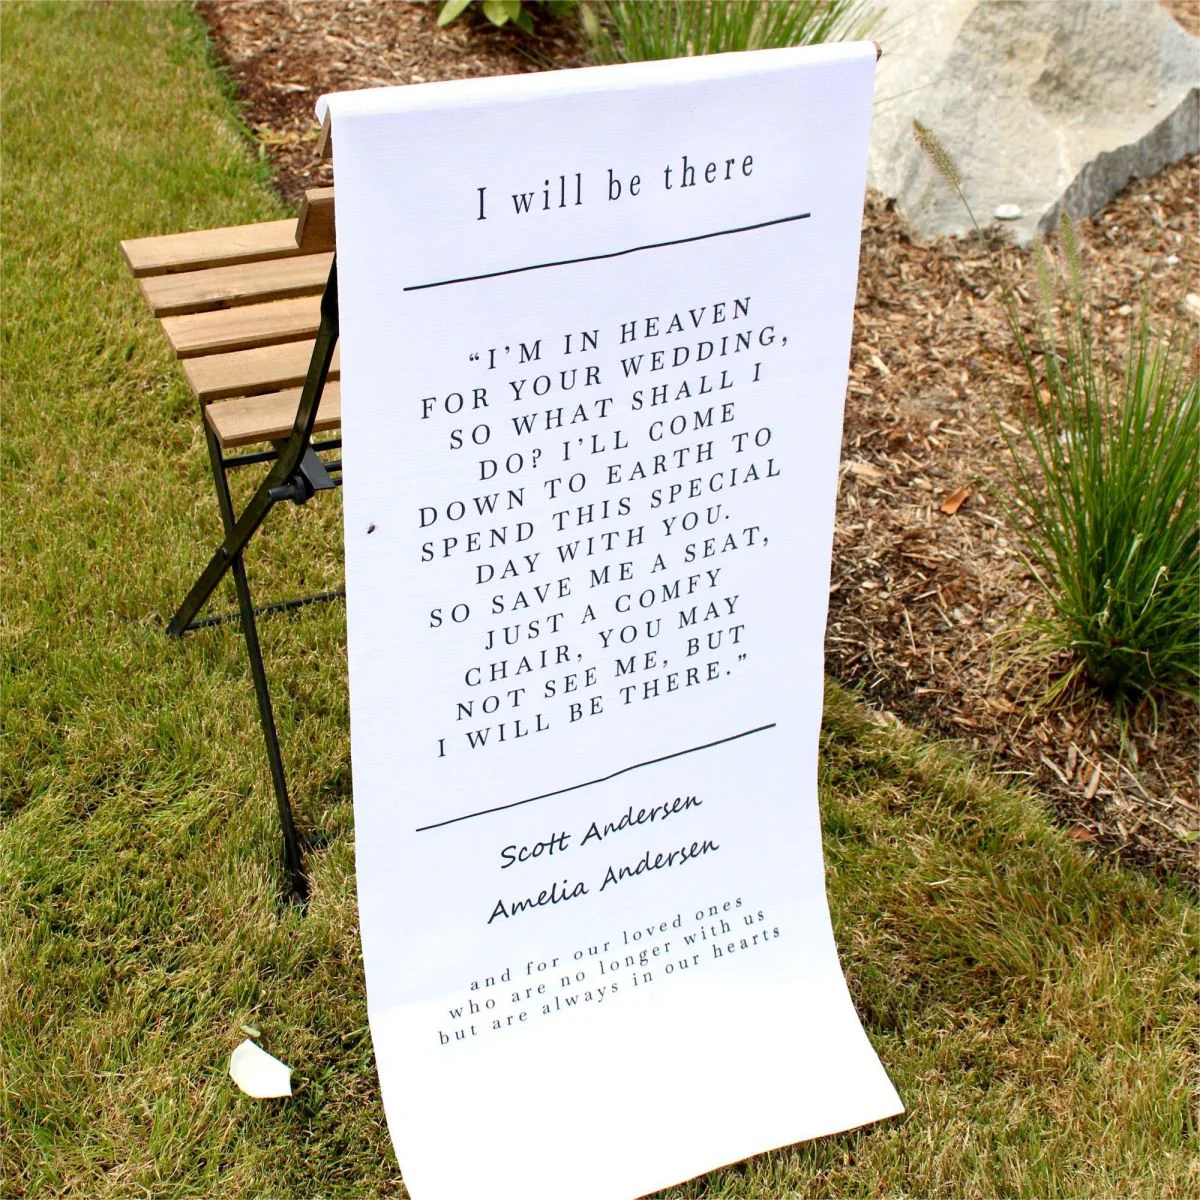 I will be there
“I’M IN HEAVEN
FOR YOUR WEDDING,
SO WHAT SHALL I
DO? I’LL COME
DOWN TO EARTH TO
SPEND THIS SPECIAL
DAY WITH YOU.
SO SAVE ME A SEAT,
JUST A COMFY
CHAIR, YOU MAY
NOT SEE ME, BUT
I WILL BE THERE.”
Scott Andersen
Amelia Andersen
and for our loved ones
who are no longer with us
but are always in our hearts